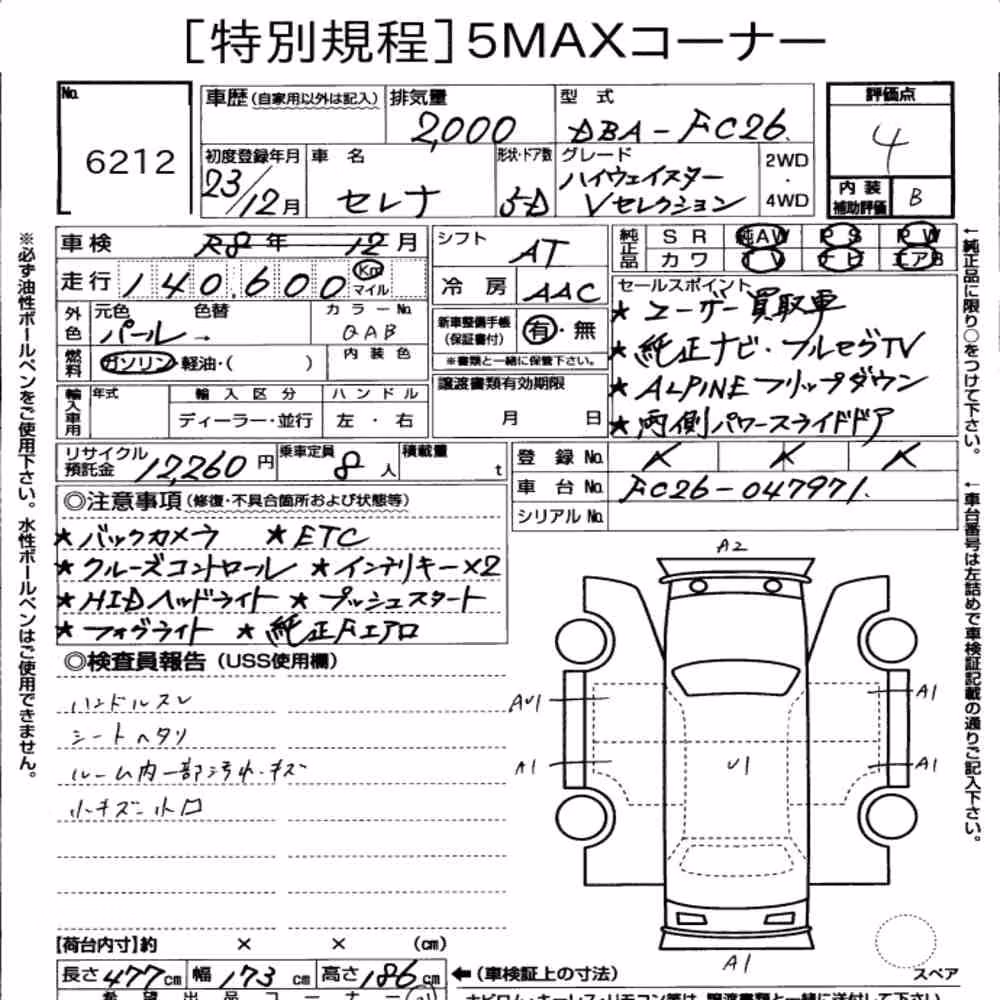 [特別規程]5MAXコーナー
No. 6212
車歴(自家用以外は記入) 排気量 2,000 型式 DBA-FC26. 評価点 4
初度登録年月 23/12月 車名 セレナ 形状・ドア数 5D グレード ハイウェイスター Vセレクション 2WD・4WD 内装補助評価 B
※必ず油性ボールペンをご使用下さい。水性ボールペンはご使用できません。
車検 R8年 12月
走行 140,600 Km マイル
外色 元色 パール→ 色替 カラーNo. QAB
燃料 ガソリン・軽油・( ) 内装色
輸入車用 年式 輸入区分 ディーラー・並行 ハンドル 左・右
シフト AT
冷房 AAC
新車整備手帳(保証書付) 有・無
※書類と一緒に保管下さい。
譲渡書類有効期限 月 日
純正品 SR 純AW PS PW
カワ TV ナビ エアB
セールスポイント
★ユーザー買取車
★純正ナビ・フルセグTV
★ALPINEフリップダウン
★両側パワースライドドア
←純正品に限り○をつけて下さい。
リサイクル預託金 12,260円 乗車定員 8人 積載量 t
登録No.
車台No. FC26-047971.
シリアルNo.
←車台番号は左詰めで車検証記載の通りご記入下さい。
◎注意事項(修復・不具合箇所および状態等)
★バックカメラ ★ETC
★クルーズコントロール ★インテリキー×2
★HIDヘッドライト ★プッシュスタート
★フォグライト ★純正Fエアロ
◎検査員報告(USS使用欄)
ハンドルスレ
シートヘタリ
ルーム内一部汚れ・キズ
小キズ小凹
A2
AU1 A1
A1 U1 A1
A1
スペア
【荷台内寸】約 × × (cm)
長さ 477cm 幅 173cm 高さ 186cm ←(車検証上の寸法)
希望出品コーナー